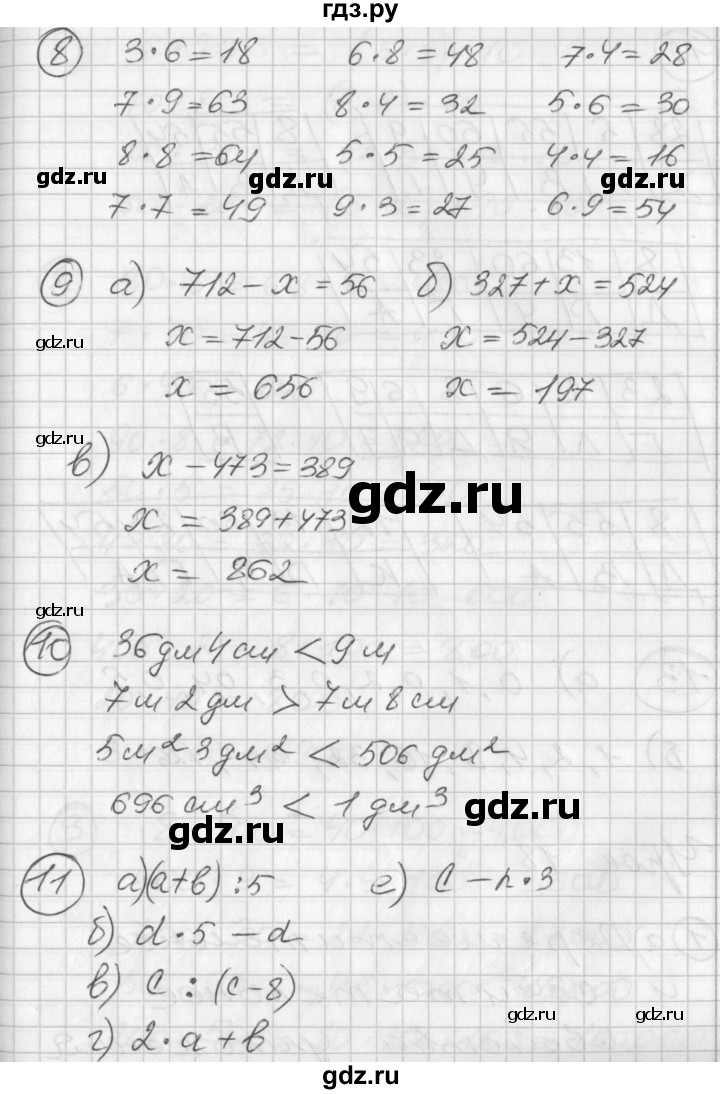 гдз.ру
8 3·6=18 6·8=48 7·4=28
7·9=63 8·4=32 5·6=30
8·8=64 5·5=25 4·4=16
gdz.ru gdz.ru gdz.ru
7·7=49 9·3=27 6·9=54
9 а) 712-x=56 б) 327+x=524
gdz.ru x=712-56 x=524-327
x=656 x=197
gdz.ru
в) x-473=389
gdz.ru
x=389+473
x=862
gdz.ru
10 36дм4см<9м
7м2дм>7м8см
5м²3дм²<506дм²
696см³<1дм³
gdz.ru gdz.ru
11 а)(a+b):5 е) c-n·3
б) d·5-d
в) c:(c-8)
gdz.ru gdz.ru
г) 2·a+b
gdz.ru